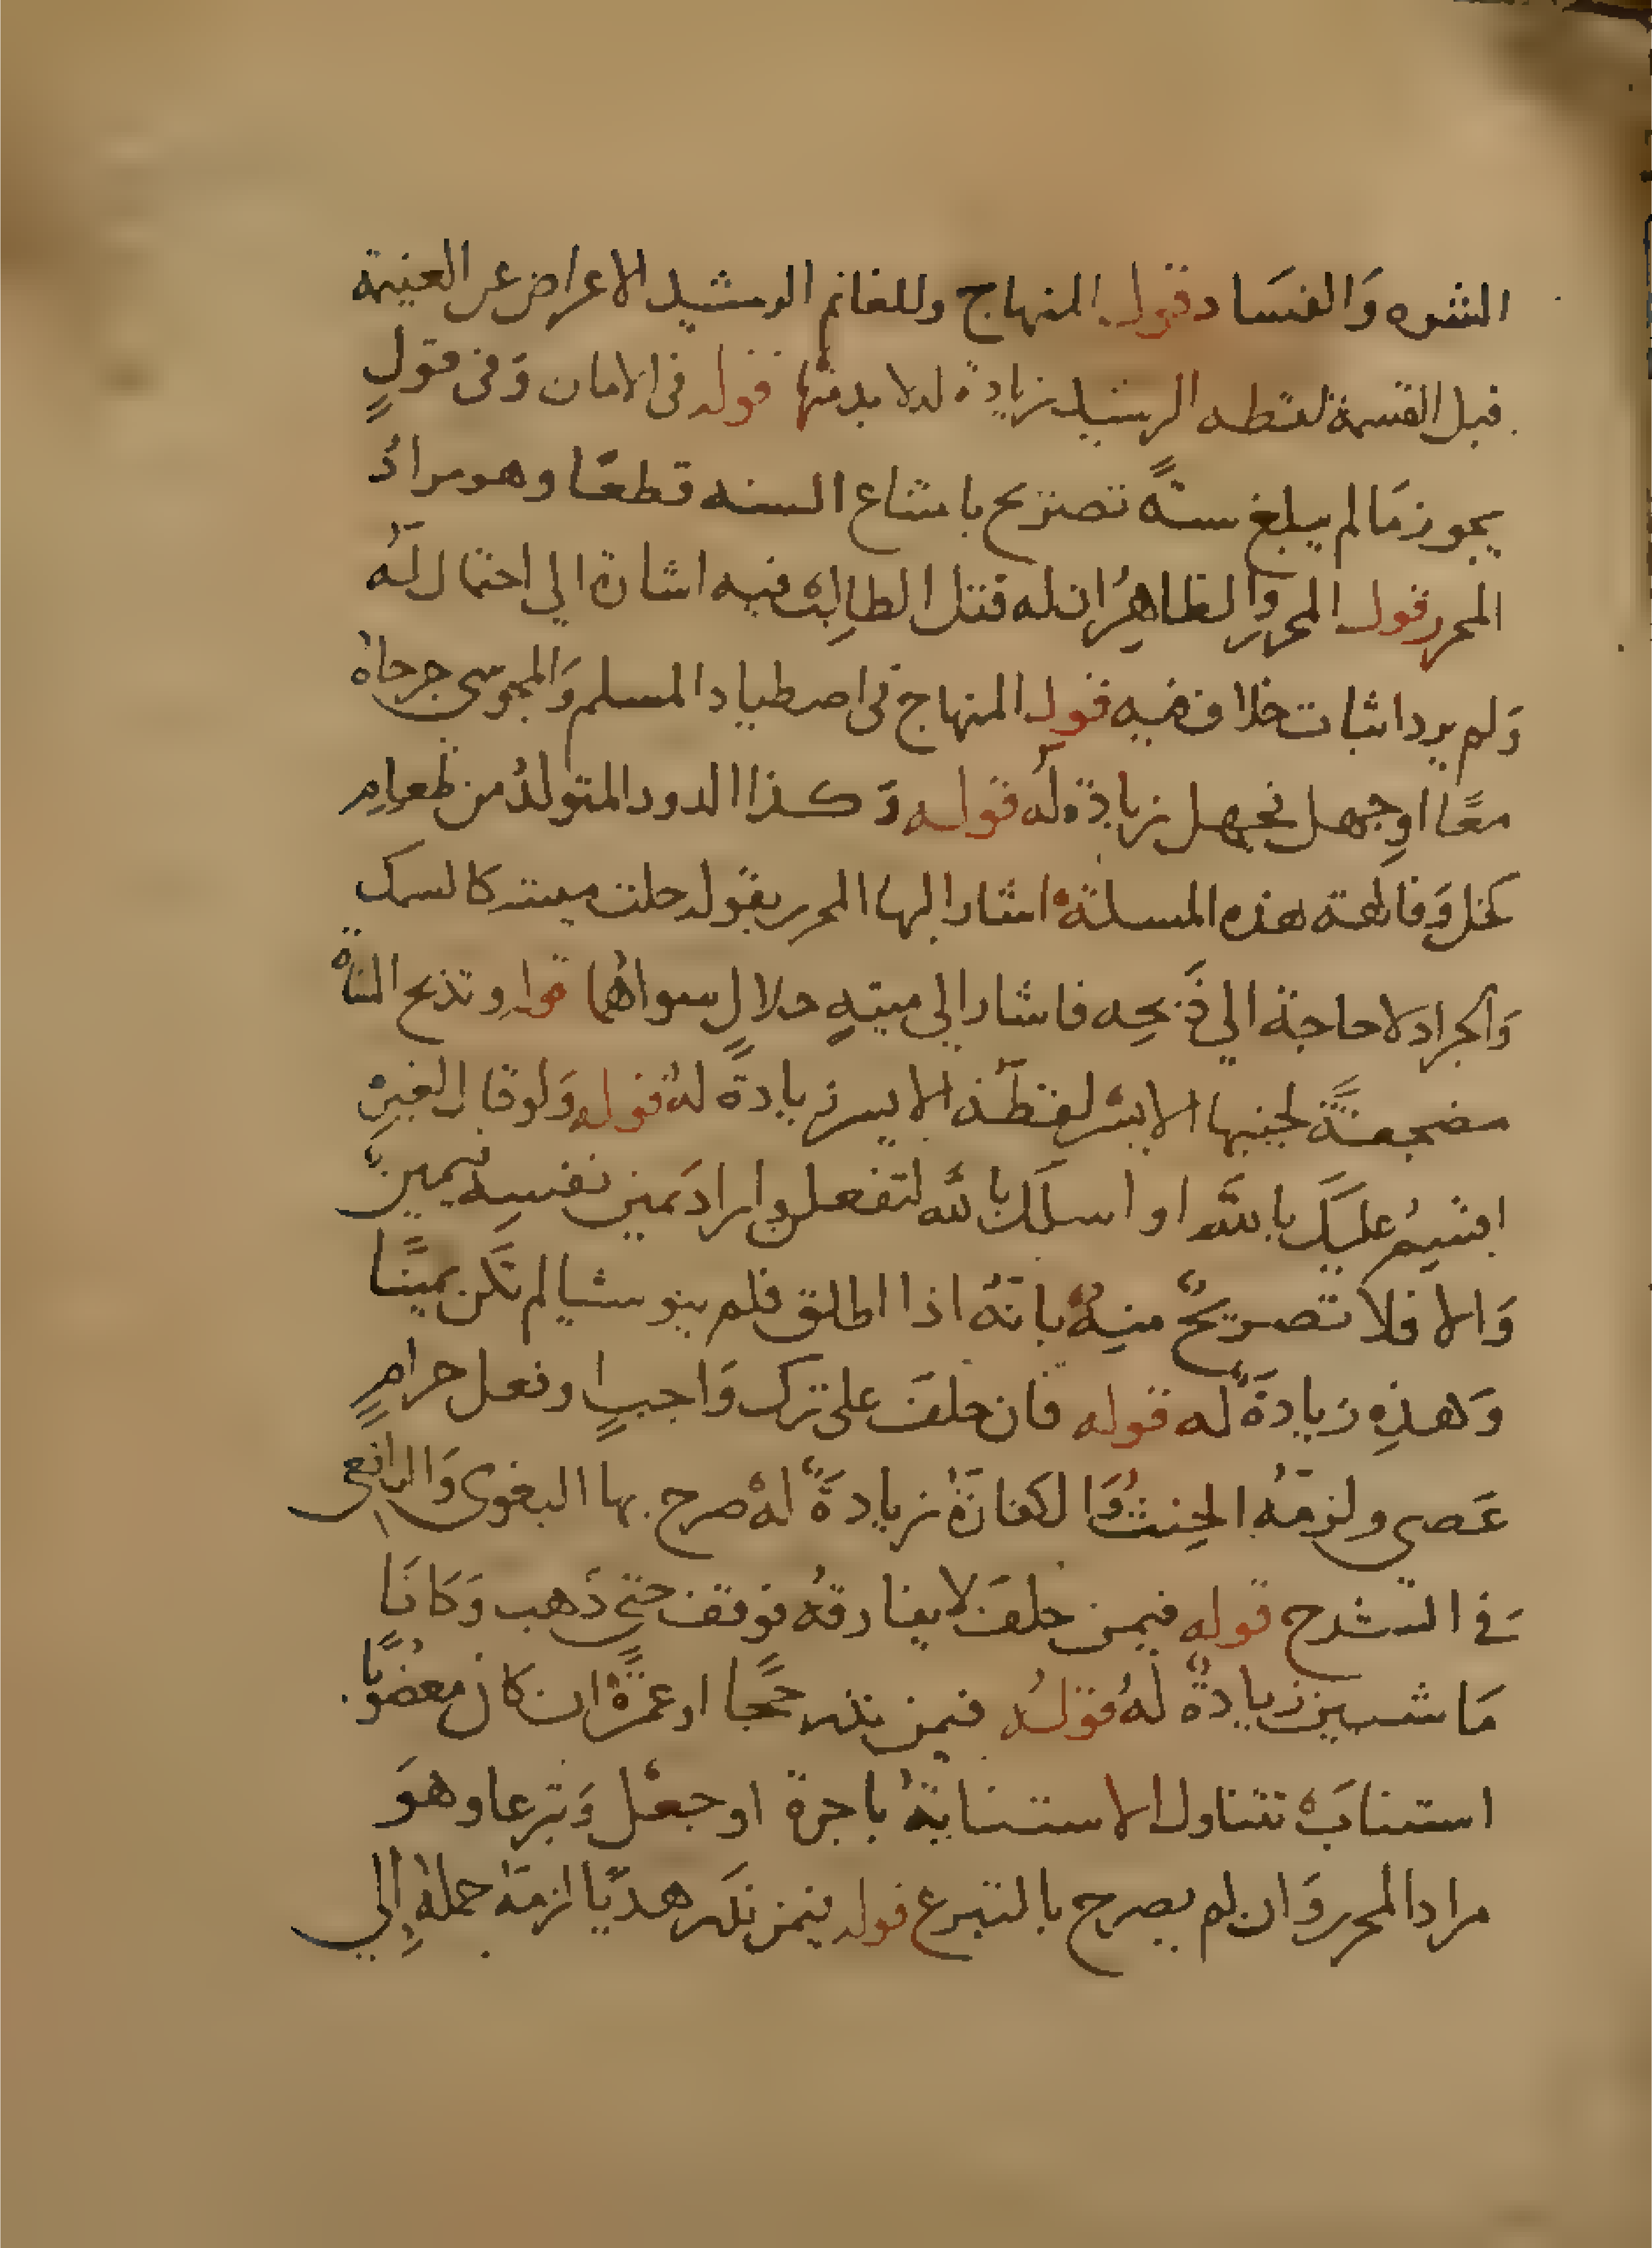 الشره وَالفسَاد قول المنهاج وللغانم الرشيد الاعراض عن الغنيمة
قبل القسمة لفظه الرشيد زيادة له لا بد منها قوله في الامان وَفي قولٍ
يجوز مَا لم يبلغ سنةً تصريح بامتناع السنه قطعًا وهو مرادُ
المحرر قول المحرر والظاهِرُ ان له قتل الطالِب فيه اشارة الي احتمال لَهُ
وَلم يرد اثبات خلاف فيه قول المنهاج في اصطياد المسلم وَالمجوسي جرحاهُ
معًا اوجهل نجهل زيادة لَهُ قوله وَكذا الدود المتولدُ من طعامٍ
كخل وَفاكهة هذه المسلة اشار اليها المحرر بقوله حلت ميتته كالسمك
وَالجراد لا حاجة الي ذَبحِه فاشار الي ميتةٍ حلالٍ سواهُما قوله وتذبح الشاة
مضجعةً لجنبها الايسر لفظَة الايسر زيادةً لهُ قوله وَلو قال لغيرِه
اقسِمُ عليكَ بالله او اسلَك بالله لتفعلن واراد يَمين نفسه فيمينٌ
وَالا فلا تصريحٌ منهُ بانهُ اذا اطلق فلم ينو شيا لم تكن يمينًا
وَهذِهِ زيادةٌ له قوله فان حلفَ على ترك وَاجبٍ او فعل حرامٍ
عَصى ولزمهُ الحِنثُ وَالكفارةُ زيادةٌ لهُ صرح بها البغوى وَالرافعي
في الشرح قوله فيمن حلفَ لا يفارقهُ فوقف حتي ذَهب وَكانَا
مَاشيين زيادةٌ لهُ قولهُ فيمن نذر حجًا او عمرةً ان كان معضُوبًا
استنابَ تتناول الاستنابةُ باجرة او جعْل وَتبرعا وهوَ
مراد المحرر وَان لم يصرح بالتبرع قوله فيمن نذر هديًا لزمهُ حملهُ إلي